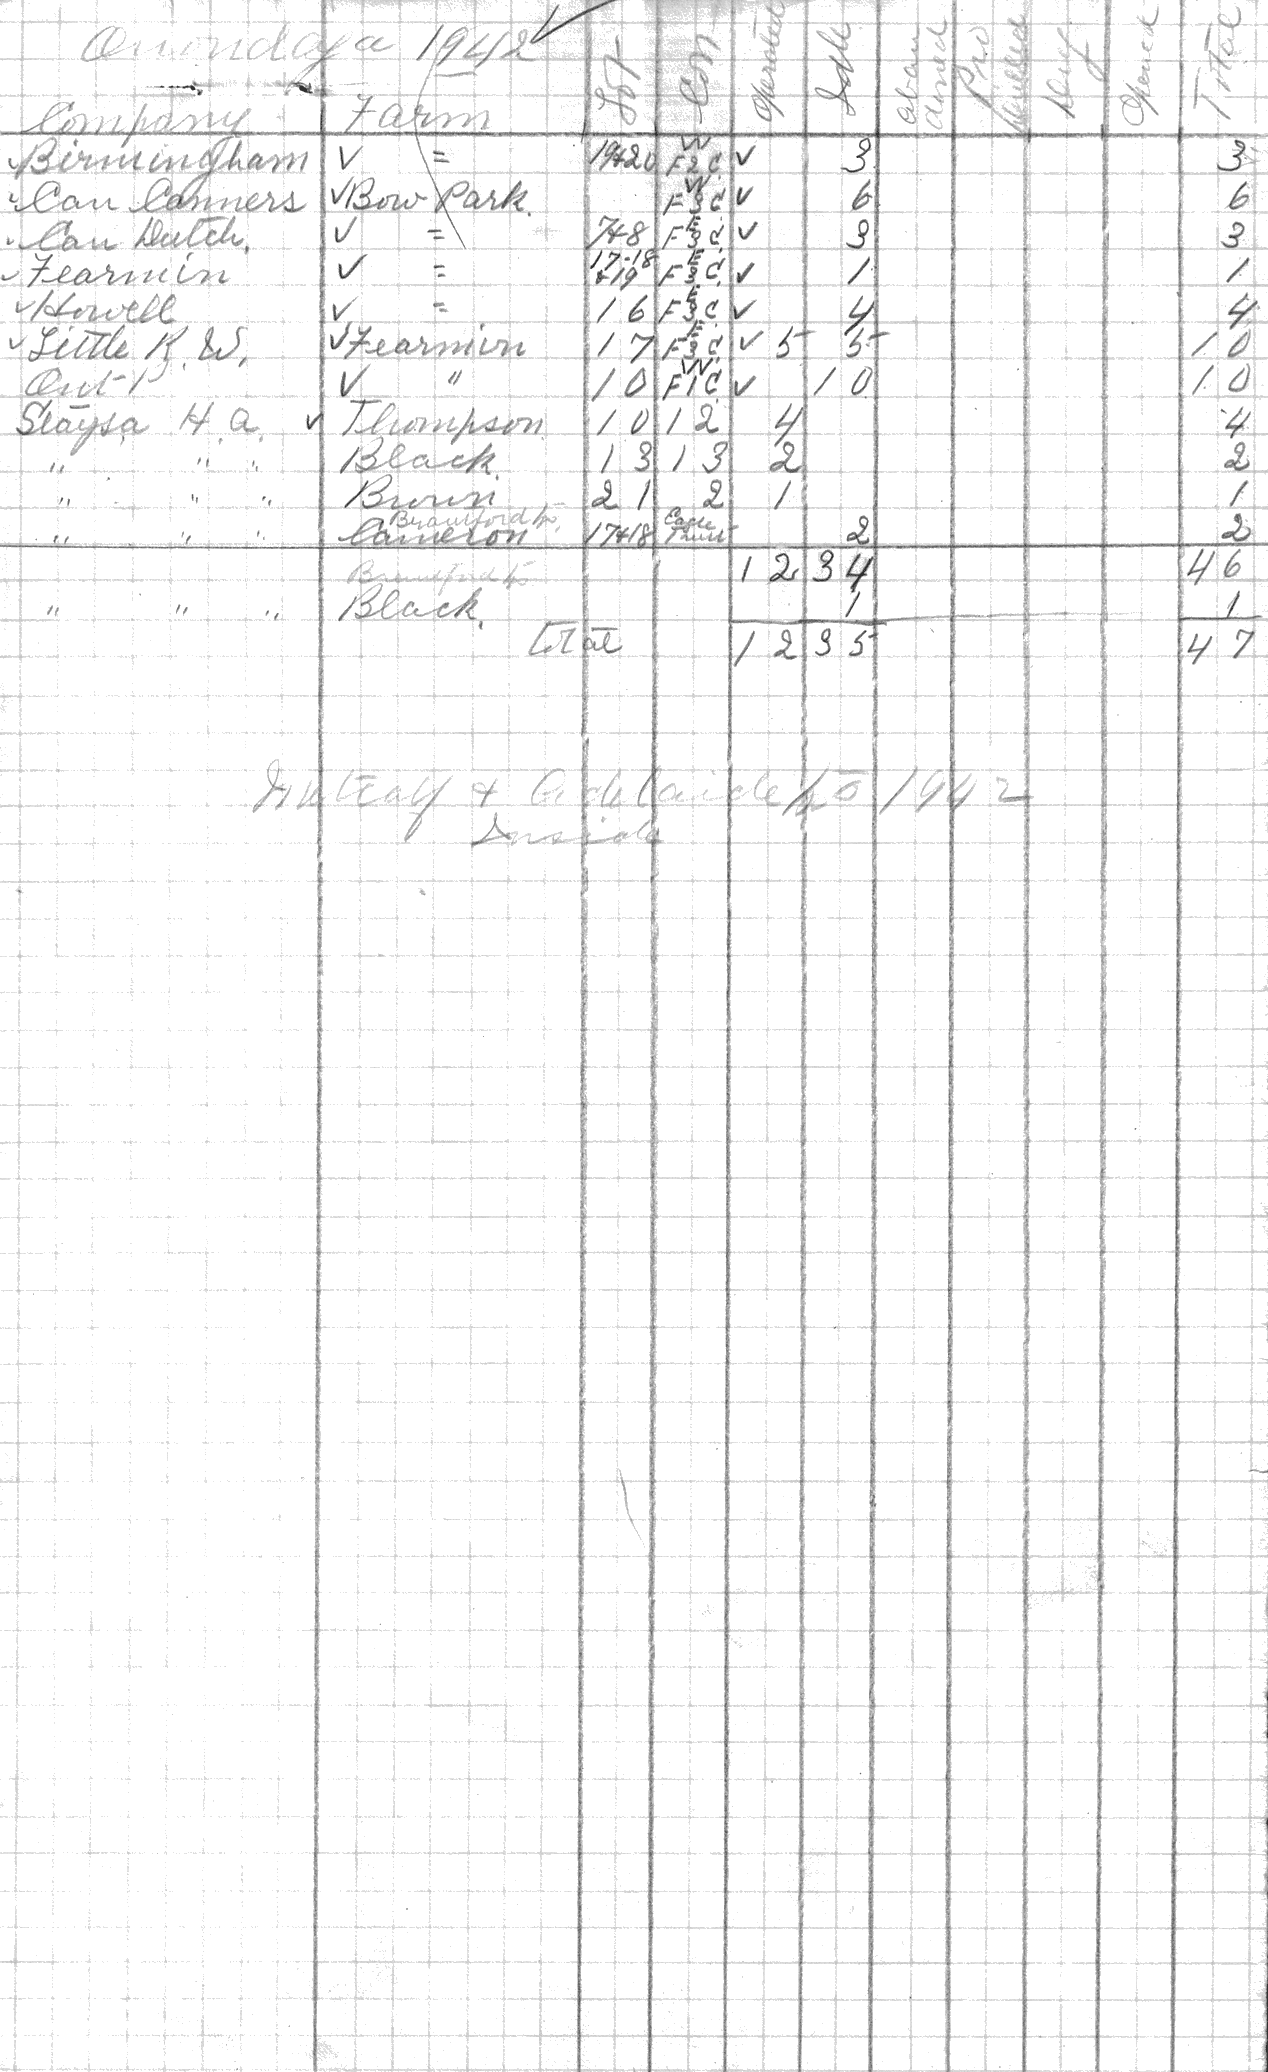 Onondaga 1942
Company Farm Lot Con Operated Idle aban doned Pro Dry Opened Total
Birmingham ✓ = 19+20 F2C W ✓ 3 3
Can Canners ✓ Bow Park. F3C W ✓ 6 6
Can Dutch. ✓ = 7+8 F3C E ✓ 3 3
Fearmin ✓ = 17-18 +19 F3C E ✓ 1 1
Howell ✓ = 16 F3C E ✓ 4 4
Little R. W. ✓ Fearmin 17 F3C E ✓ 5 5 10
Ont P ✓ " 10 F1C W ✓ 10 10
Slaysa H. a. ✓ Thompson 10 12 4 4
" " " Black 13 13 2 2
" " " Brown 21 2 1 1
Brantford tp.
" " " Cameron 17+18 2 2
12 34 46
Brantford tp
" " " Black. 1 1
Total 12 35 47
Metcalf + Adelaide tp 1942
Inside